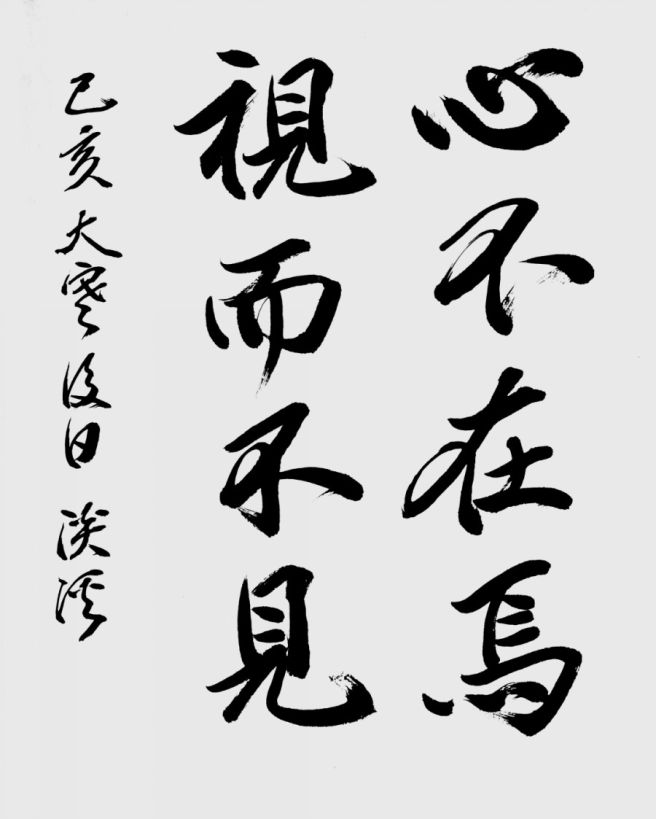 心不在焉
視而不見
己亥大寒後日 淡溪